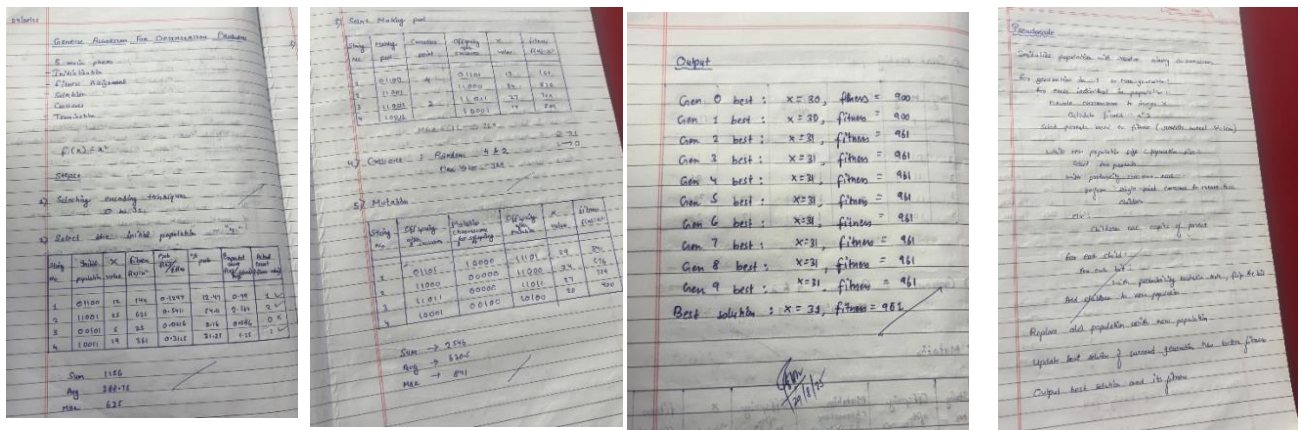 GENETIC ALGORITHM FOR OPTIMIZATION PROBLEMS
5 main phases
- Initialization
- Fitness Assignment
- Selection
- Crossover
- Termination
f(x) = x²
Steps:
1) Selecting encoding technique
0 to 31
2) Select the initial population
String No. Initial population X value Fitness Prob % prob Expected Actual count
1 01100 12 144 0.1247 12.47 0.49 1
2 11001 25 625 0.5411 54.11 2
3 00101 5 25 0.0216 2.16 0.086 0
4 10011 19 361 0.3125 31.25 1.25 1
Sum 1156
Avg
Max 625
3) Select Mating pool
String No. Mating pool Crossover point Offspring after crossover X value fitness
1 01100 4 01101 13 169
2 11001 11000
3 11001 2 11011 27 729
4 10011 10001 17 289
4) Crossover : Random 4 & 2
5) Mutation
String No. Offspring after crossover Mutation chromosome for offspring Offspring after mutation X value fitness
1 01101 10000 11101 29
2 11000 00000 11000 24 576
3 11011 00000 11011 27
4 10001 00100 10100 20 400
Sum → 2546
Avg →
Max → 841
Output
Gen 0 best : x = 30, fitness = 900
Gen 1 best : x = 30, fitness = 900
Gen 2 best : x = 31, fitness = 961
Gen 3 best : x = 31, fitness = 961
Gen 4 best : x = 31, fitness = 961
Gen 5 best : x = 31, fitness = 961
Gen 6 best : x = 31, fitness = 961
Gen 7 best : x = 31, fitness = 961
Gen 8 best : x = 31, fitness = 961
Gen 9 best : x = 31, fitness = 961
Best solution : x = 31, fitness = 961
29/8/25
Pseudocode
Initialize population with random binary chromosomes
For generation in 1 to
For each individual in population :
Decode chromosome to integer x
Calculate fitness = x^2
Select parents based on fitness (roulette wheel selection)
while new population size < population size :
Select two parents
with probability
perform single point crossover to create two
children
else :
children are copies of parent
For each child :
For each bit :
with probability mutation rate, flip the bit
Add children to new population
Replace old population with new population
Update best solution if current generation has better fitness
Output best solution and its fitness